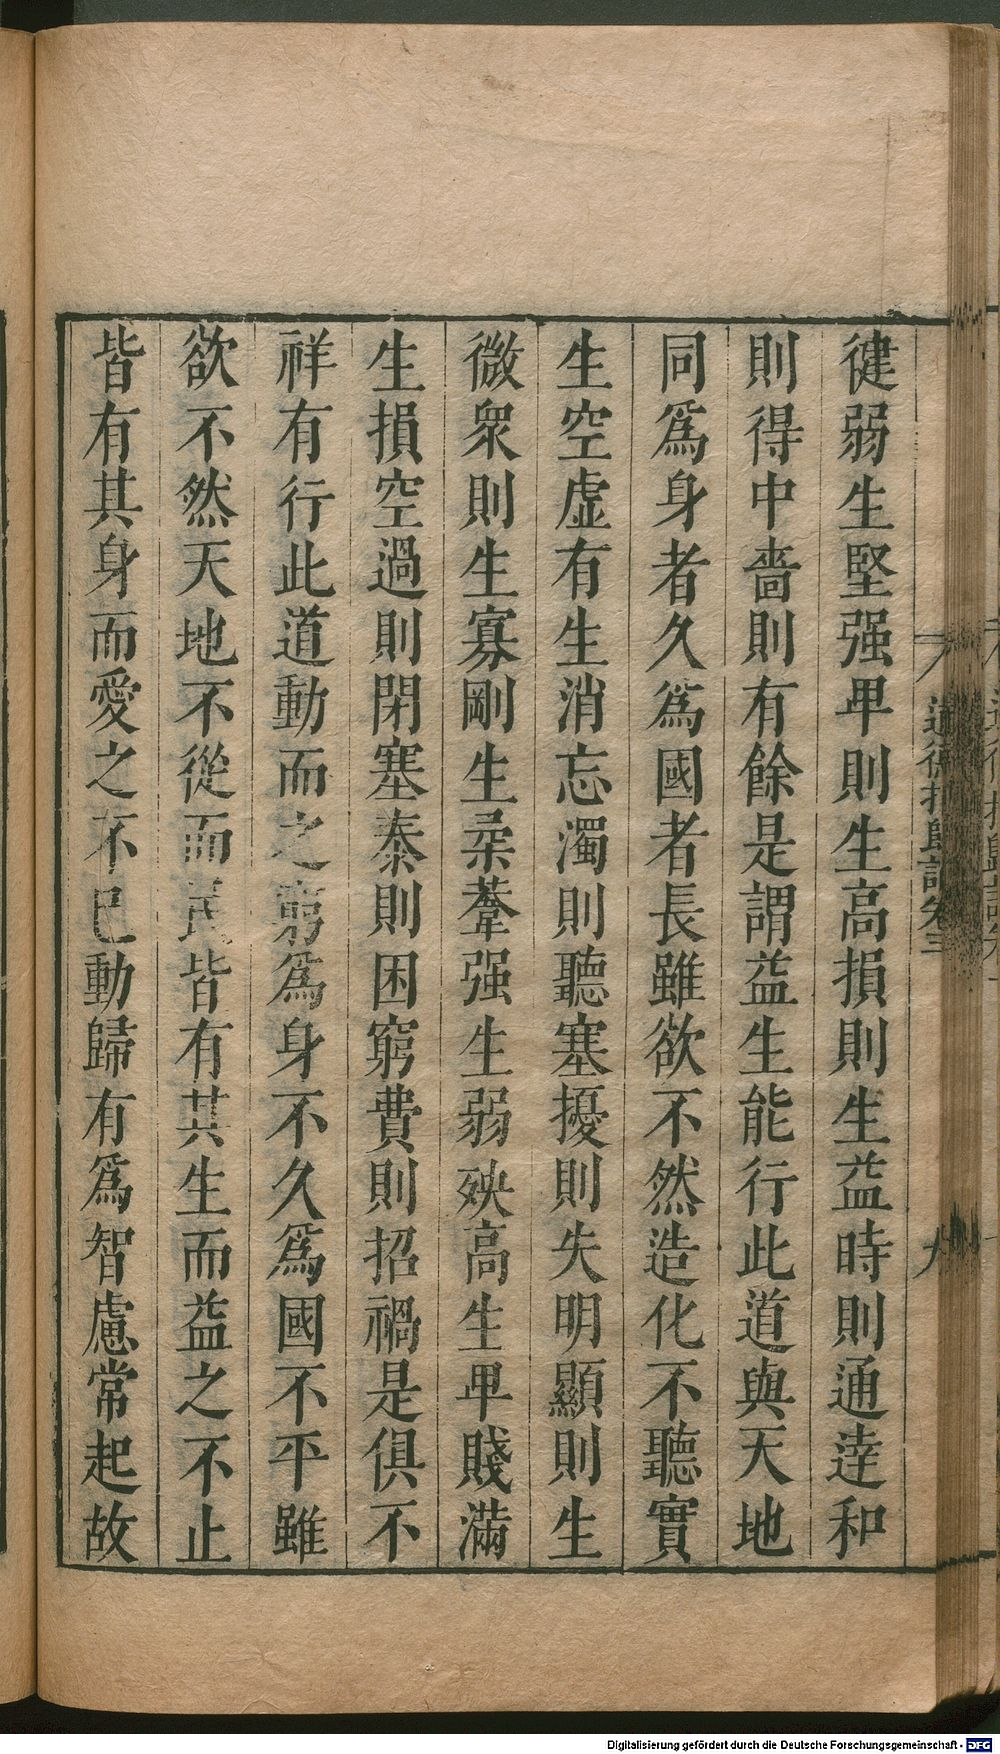 健弱生堅强卑則生高損則生益時則通達和
則得中嗇則有餘是謂益生能行此道與天地
同爲身者久爲國者長雖欲不然造化不聽實
生空虛有生消忘濁則聽塞擾則失明顯則生
微衆則生寡剛生柔羣强生弱殃高生卑賤滿
生損空過則閉塞泰則困窮費則招禍是俱不
祥有行此道動而之窮爲身不久爲國不平雖
欲不然天地不從而民皆有其生而益之不止
皆有其身而愛之不已動歸有爲智慮常起故
道德指歸論卷三
九
Digitalisierung gefördert durch die Deutsche Forschungsgemeinschaft - DFG